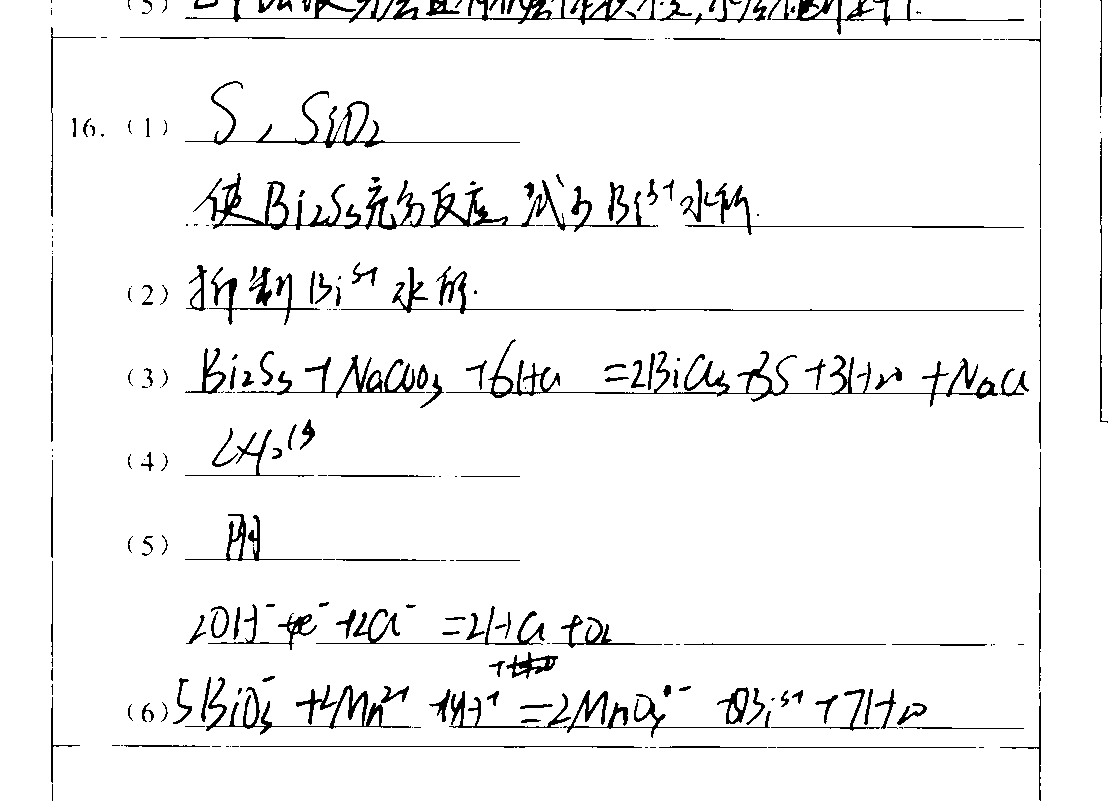 (5)
16. (1) S, SiO₂
使Bi₂S₃充分反应, 减少Bi³⁺水解.
(2) 抑制Bi³⁺水解.
(3) Bi₂S₃+NaClO₃+6HCl=2BiCl₃+3S+3H₂O+NaCl
(4)
(5) 阴
2OH⁻-4e⁻+2Cl⁻=2HCl+O₂
(6) 5BiO₃⁻+2Mn²⁺+14H⁺=2MnO₄⁻+5Bi³⁺+7H₂O